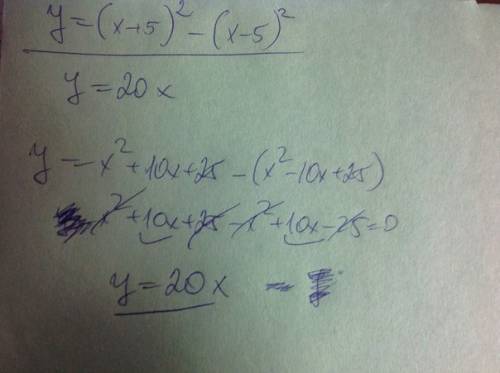 y=(x+5)²-(x-5)²
y=20x
y=x²+10x+25-(x²-10x+25)
x²+10x+25-x²+10x-25=0
y=20x -